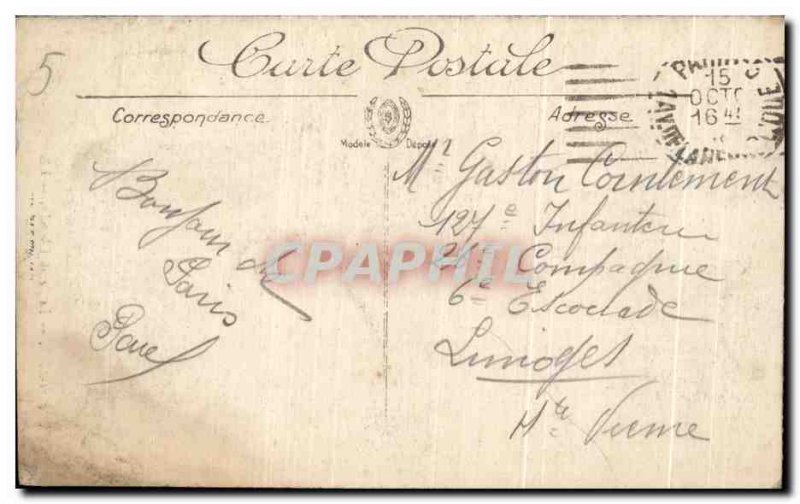 5
Carte Postale
Correspondance
Adresse
Modèle Déposé
15
OCTO
16 4
Mr Gaston
127e Infanterie
Compagnie
6e Escouade
Limoges
Hte Vienne
Bonjour de
Paris
CPAPHIL